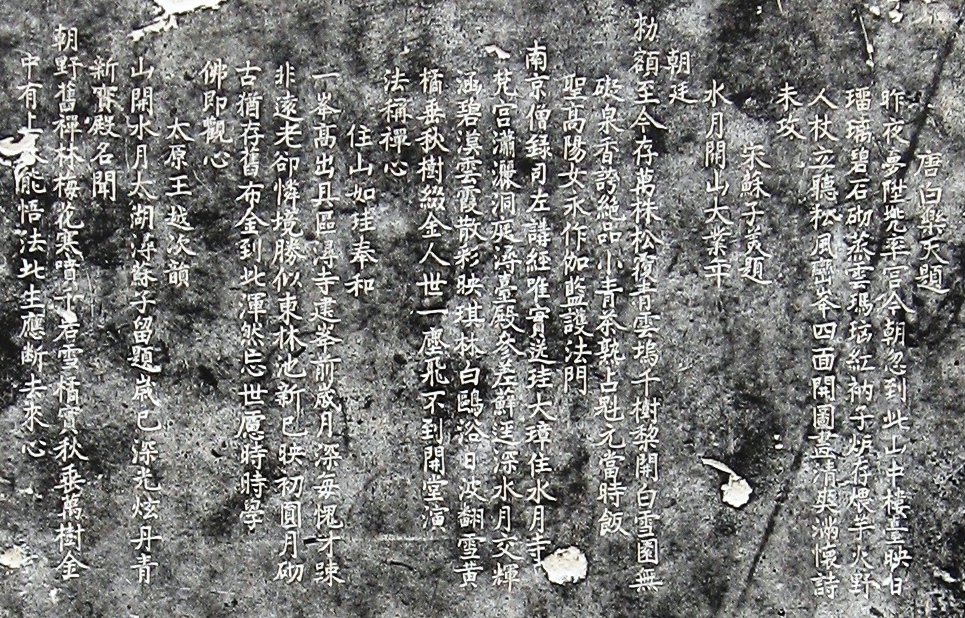 唐白樂天題
昨夜夢陞兜率宮今朝忽到此山中樓臺映日
璢璃碧石砌蒸雲瑪瑙紅衲子炉存煨芋火野
人杖立聽松風巒峯四面開圖畫清爽满懷詩
未攻
宋蘇子美題
水月開山大業年
朝廷
勑額至今存萬株松覆青雲塢千樹黎開白雪園無
礙泉香誇絶品小青茶熟占魁元當時飯
聖高陽女永作伽藍護法門
南京僧録司左講經唯實送珪大璋住水月寺
梵宫瀟灑洞庭潯臺殿參差鮮逕深水月交輝
涵碧漠雲霞散彩映琪林白鷗浴日波翻雪黄
橘垂秋樹綴金人世一塵飛不到開堂演
法稱禪心
住山如珪奉和
一峯髙出具區潯寺建峯前歳月深每愧才踈
非遠老卻憐境勝似東林池新已映初圓月砌
古猶存舊布金到此渾然忘世慮時時學
佛即觀心
太原王越次韻
山開水月太湖潯蘇子留題歳已深光炫丹青
新寳殿名聞
朝野舊禪林梅花寒噴千岩雪橘實秋垂萬樹金
中有上能悟法此生應断去來心